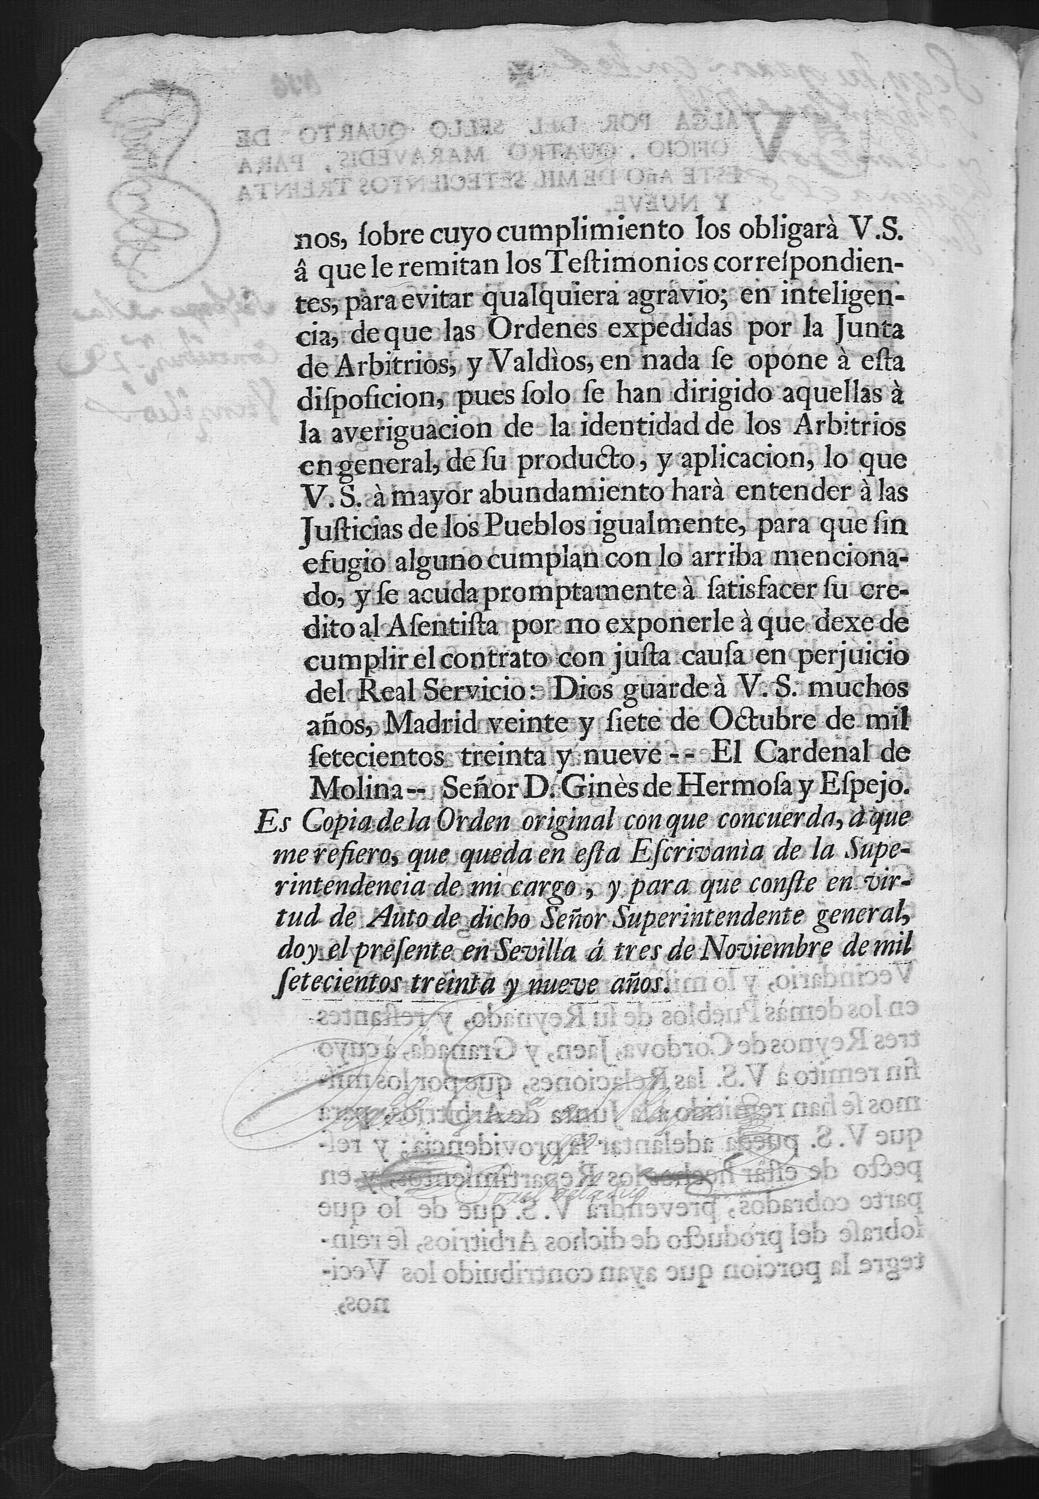 nos, ſobre cuyo cumplimiento los obligarà V.S.
â que le remitan los Teſtimonios correſpondien-
tes, para evitar qualquiera agravio; en inteligen-
cia, de que las Ordenes expedidas por la Junta
de Arbitrios, y Valdìos, en nada ſe opone à eſta
diſpoſicion, pues ſolo ſe han dirigido aquellas à
la averiguacion de la identidad de los Arbitrios
en general, de ſu producto, y aplicacion, lo que
V. S. à mayor abundamiento harà entender à las
Juſticias de los Pueblos igualmente, para que ſin
efugio alguno cumplan con lo arriba menciona-
do, y ſe acuda promptamente à ſatisfacer ſu cre-
dito al Aſentiſta por no exponerle à que dexe de
cumplir el contrato con juſta cauſa en perjuicio
del Real Servicio: Dios guarde à V. S. muchos
años, Madrid veinte y ſiete de Octubre de mil
ſetecientos treinta y nueve -- El Cardenal de
Molina -- Señor D. Ginès de Hermoſa y Eſpejo.
Es Copia de la Orden original con que concuerda, á que
me refiero, que queda en eſta Eſcrivanìa de la Supe-
rintendencia de mi cargo, y para que conſte en vir-
tud de Auto de dicho Señor Superintendente general,
doy el preſente en Sevilla á tres de Noviembre de mil
ſetecientos treinta y nueve años.